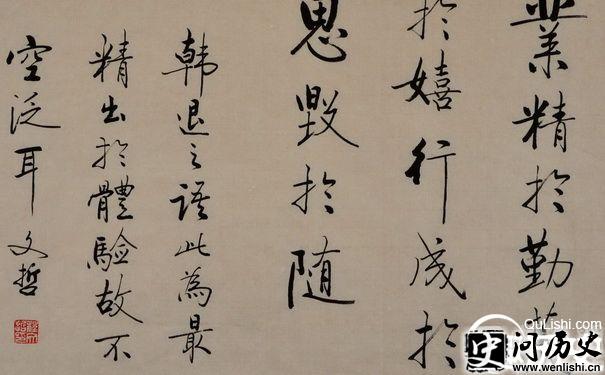 業精於勤
於嬉行成於
思毀於随
韓退之語此為最
精出於體驗故不
空泛耳 文哲
QuLishi.com
问历史
www.wenlishi.cn